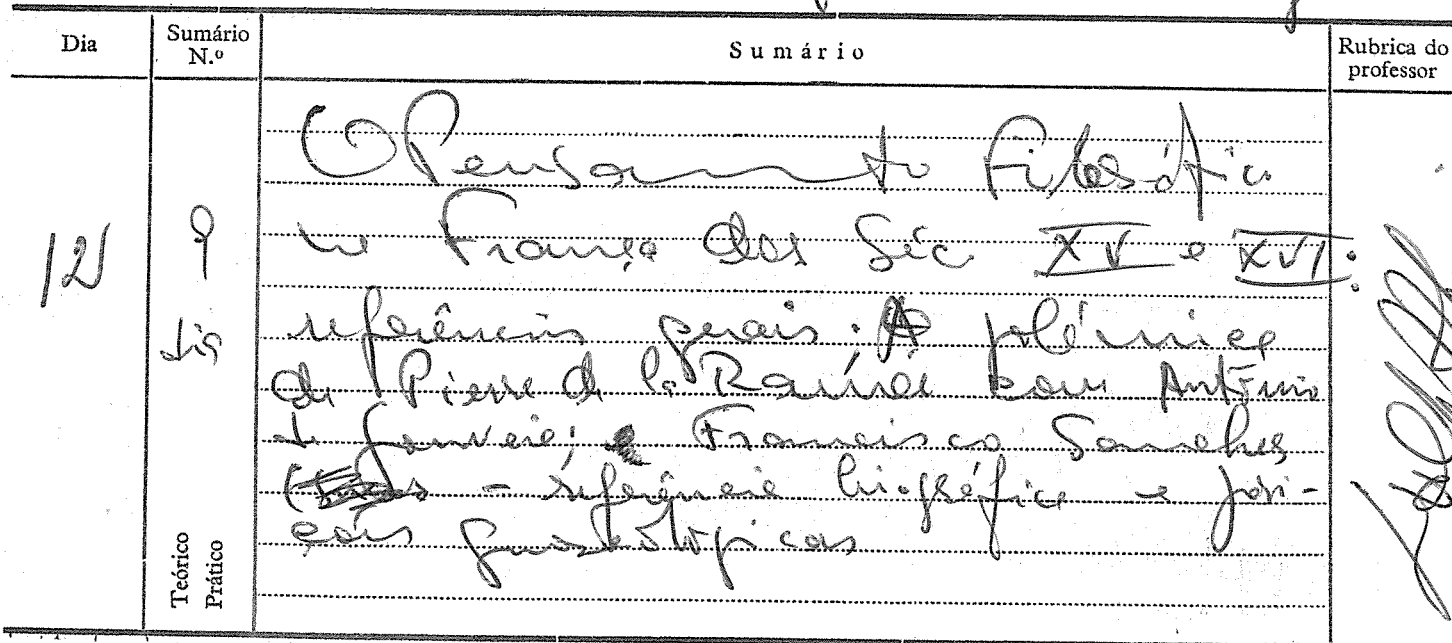 Dia
Sumário N.º
Sumário
Rubrica do professor
12
9
Teórico
Prático
O Pensamento Filosófico
na França dos Séc. XV e XVI:
referências gerais. A polémica
de Pierre de la Ramée com António
de Gouveia; e Francisco Sanches
- referência biográfica e posi-
ções gnoseológicas